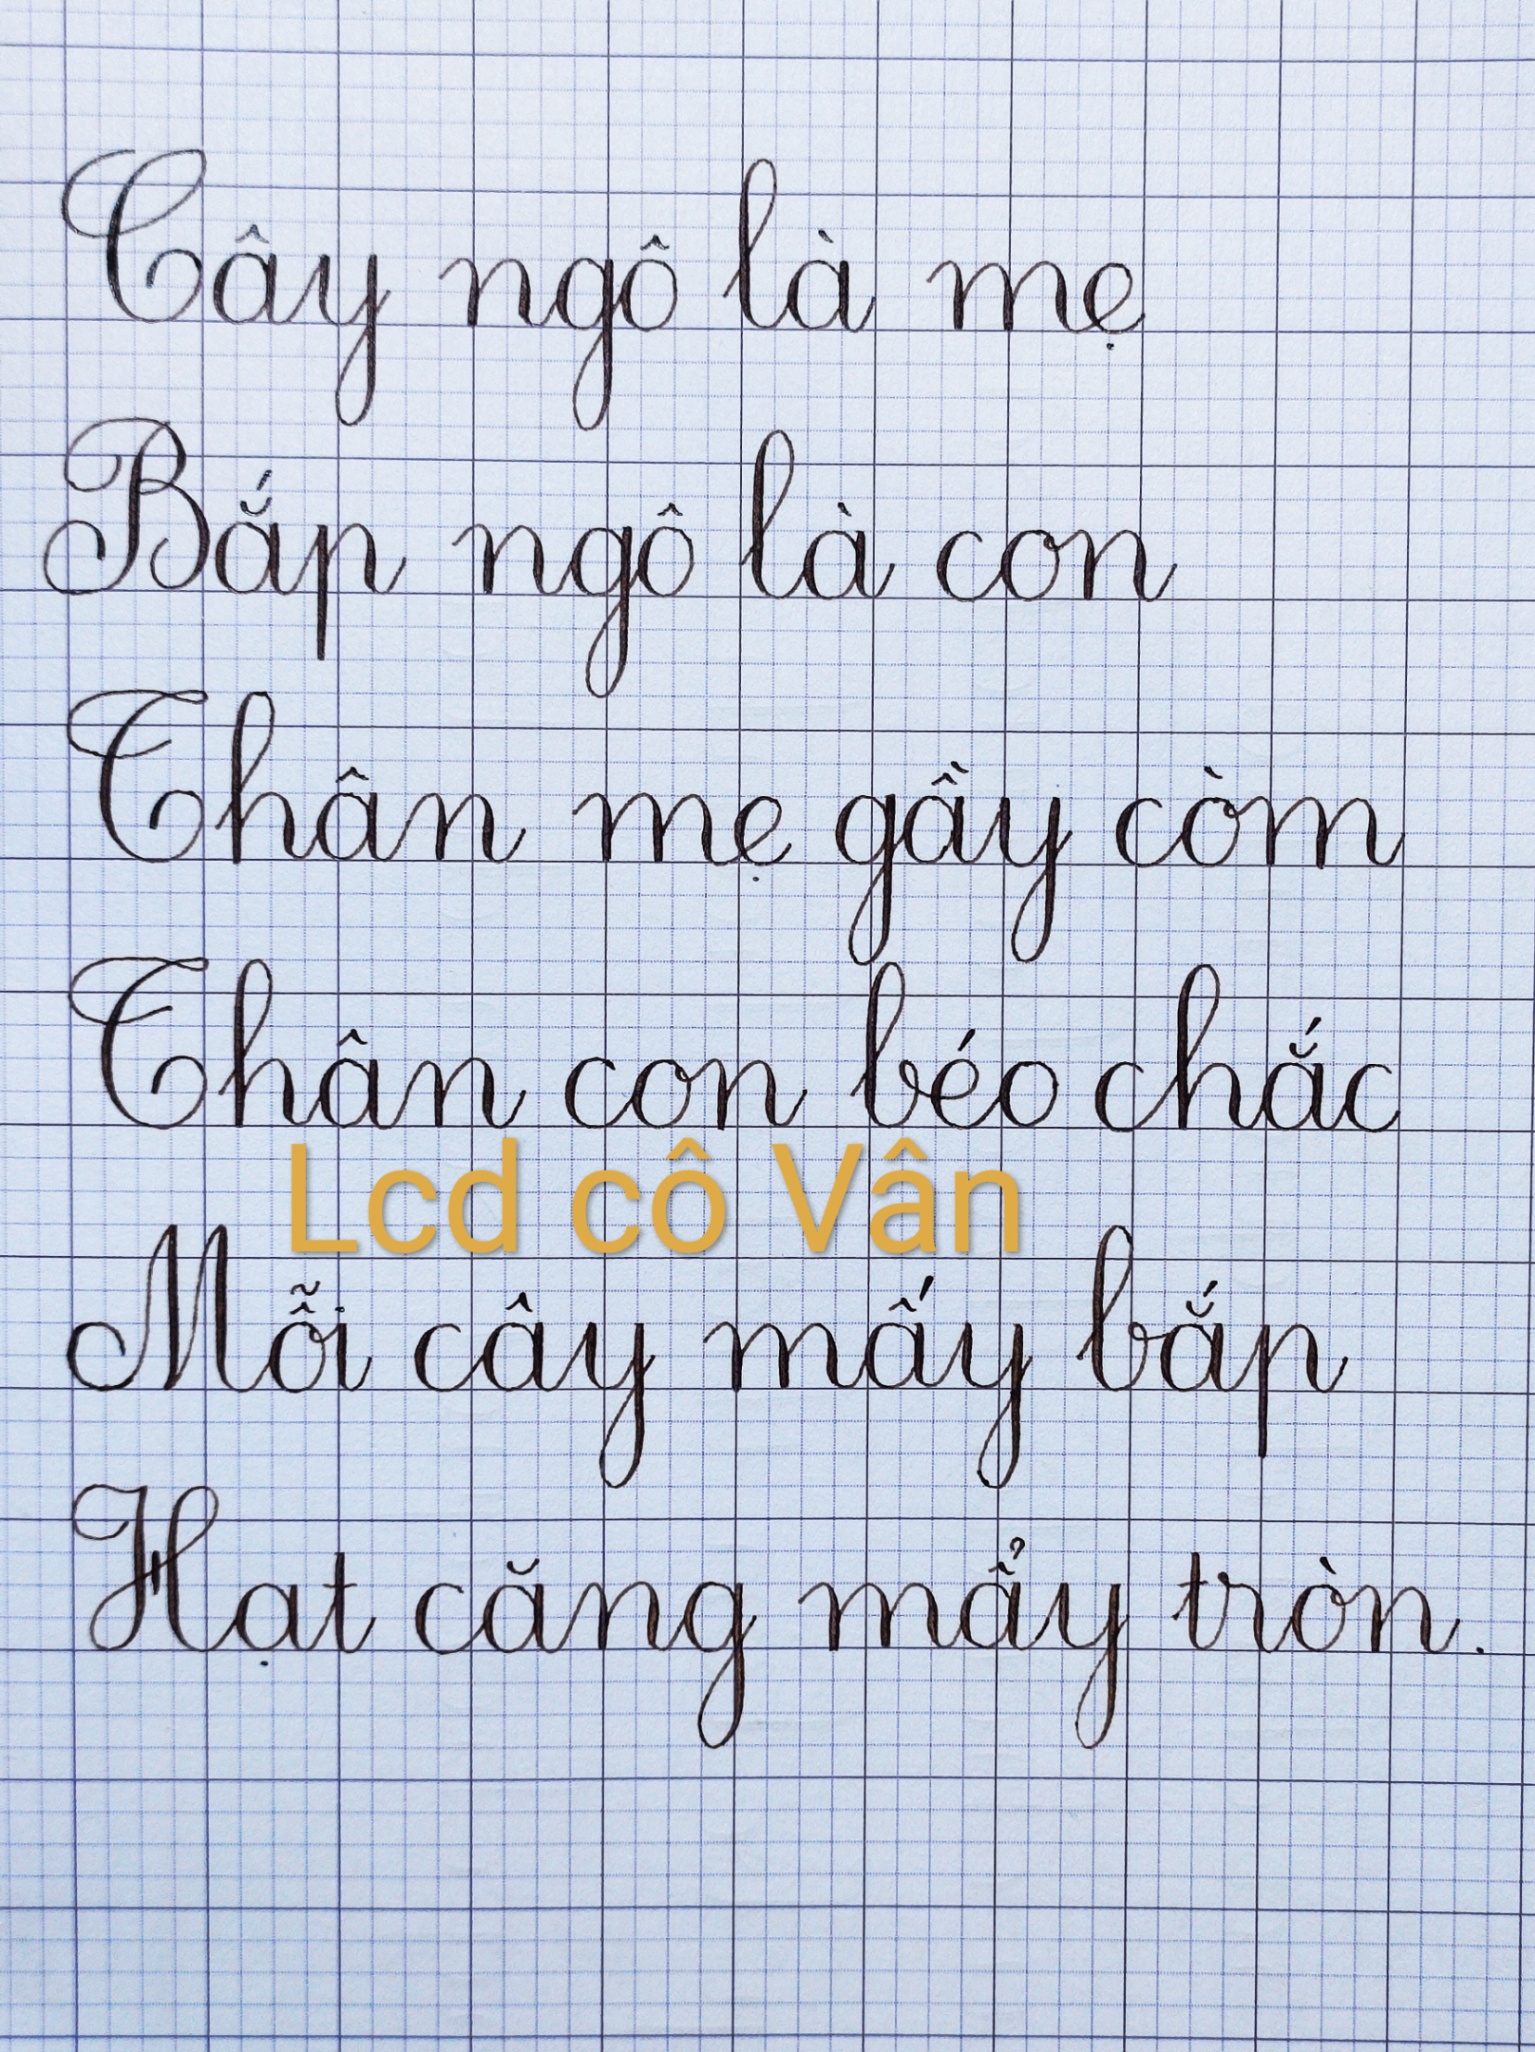 Cây ngô là mẹ
Bắp ngô là con
Thân mẹ gầy còm
Thân con béo chắc
Lcd cô Vân
Mỗi cây mấy bắp
Hạt căng mẩy tròn.